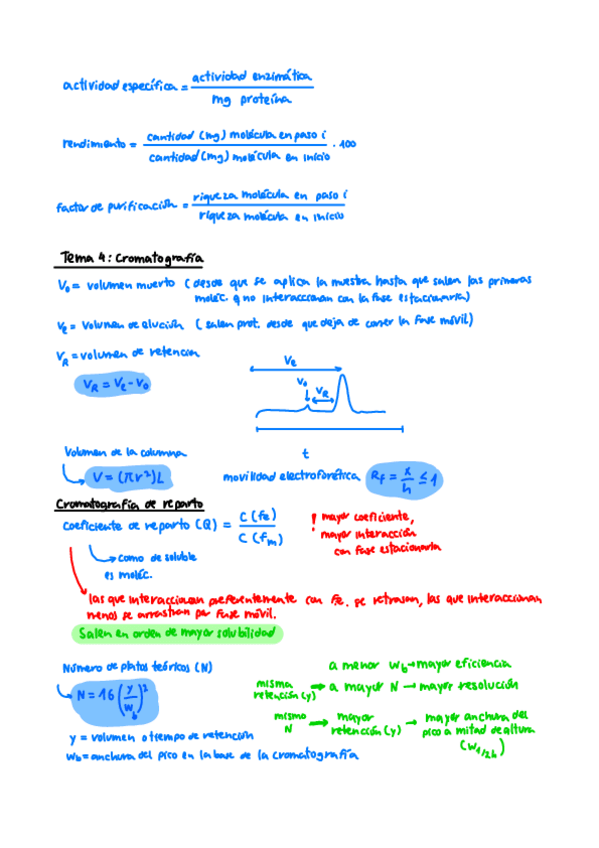 actividad específica = actividad enzimática / mg proteína
rendimiento = cantidad (mg) molécula en paso i / cantidad (mg) molécula en inicio · 100
factor de purificación = riqueza molécula en paso i / riqueza molécula en inicio
Tema 4: Cromatografía
V₀ = volumen muerto (desde que se aplica la muestra hasta que salen las primeras
moléc. q no interaccionan con la fase estacionaria)
Ve = Volumen de elución (salen prot. desde que deja de correr la fase móvil)
V_R = volumen de retención
V_R = Ve - V₀
Ve
V₀
V_R
t
Volumen de la columna
V = (πr²)L
movilidad electroforética Rf = x/h ≤ 1
Cromatografía de reparto
coeficiente de reparto (Q) = C (fe) / C (fm)
! mayor coeficiente,
mayor interacción
con fase estacionaria
como de soluble
es moléc.
las que interaccionan preferentemente con fe. se retrasan, las que interaccionan
menos se arrastran por fase móvil.
Salen en orden de mayor solubilidad
Número de platos teóricos (N)
N = 16 (y/w_b)²
y = volumen o tiempo de retención
w_b = anchura del pico en la base de la cromatografía
a menor w_b → mayor eficiencia
misma retención (y) → a mayor N → mayor resolución
mismo N → mayor retención (y) → mayor anchura del
pico a mitad de altura
(w₁/₂h)